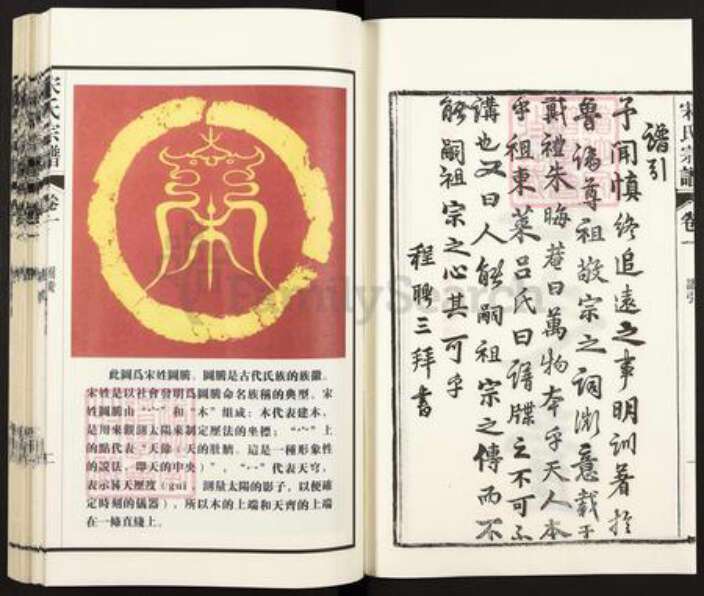 宋氏宗譜
卷一
譜引
予聞慎終追遠之事明訓著於
魯論尊祖敬宗之詞微意載于
戴禮朱晦菴曰萬物本乎天人本
乎祖東萊呂氏曰譜牒之不可不
講也又曰人能嗣祖宗之傳而不
能嗣祖宗之心其可乎
程聘三拜書
宋氏宗譜
卷一
此圖爲宋姓圖騰。圖騰是古代氏族的族徽。
宋姓是以社會發明爲圖騰命名族稱的典型。宋
姓圖騰由“宀”和“木”組成：木代表建木，
是用來觀測太陽來制定歷法的坐標；“宀”上
的點代表“天齊（天的肚臍，這是一種形象性
的說法，即天的中央）”，“冖”代表天穹，
表示晷天歷度（gui，測量太陽的影子，以便確
定時刻的儀器），所以木的上端和天齊的上端
在一條直綫上。
FamilySearch